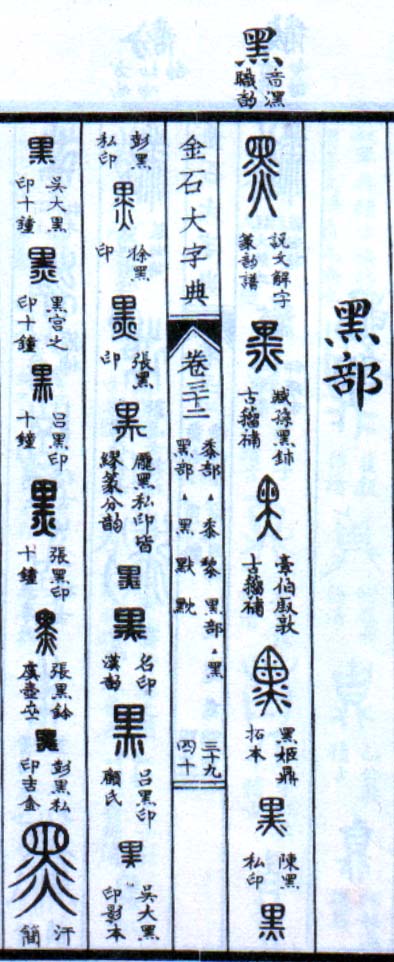 黑
音潶
職韵
黑部
黑
說文解字
篆韵譜
黑
臧孫黑鉨
古籀補
黑
伯
敦
古籀補
黑
黑姬鼎
拓本
黑
陳黑
私印
黑
金石大字典
卷三十二
黍部▲黍黎黑部▲黑
黑部▲黑默黕
三十九
四十
彭黑
私印
黑
徐黑
印
黑
張黑
印
黑
龐黑私印皆
繆篆分韵
黑
黑
名印
漢韵
黑
呂黑印
顧氏
黑
吳大黑
印影本
黑
吳大黑
印十鐘
黑
黑宮之
印十鐘
黑
呂黑印
十鐘
黑
張黑印
十鐘
黑
張黑
黑
彭黑私
印吉金
黑
汗
簡